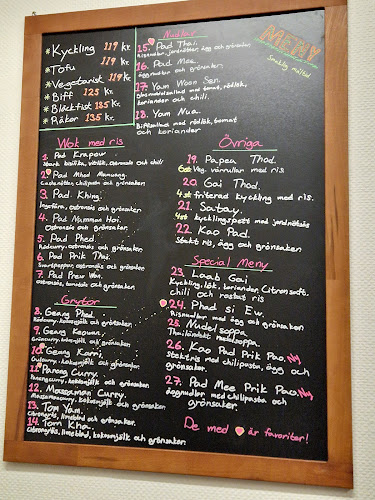 Kyckling 119 kr.
Tofu 119 kr.
Vegetarisk 119 kr.
Biff 125 kr.
Bläckfisk 135 kr.
Räkor 135 kr.
Wok med ris
1. Pad Krapow
Stark basilika, vitlök, ostronsås och chili
2. Pad Mhed Mamuang.
Cashewnötter, chilipasta och grönsaker.
3. Pad Khing.
Ingefära, ostronsås och grönsaker
4. Pad Namman Hoi.
Ostronsås och grönsaker.
5. Pad Phed.
Rödcurry, ostronsås och grönsaker.
6. Pad Prik Thai.
Svartpeppar, ostronsås och grönsaker
7. Pad Praw Wan.
ostronsås, tomatsås och grönsaker
Grytor
8. Geang Phed.
Rödcurry, kokosmjölk och grönsaker.
9. Geang Keowan.
Gröncurry, kokosmjölk och grönsaker.
10. Geang Karri.
Gulcurry, kokosmjölk och grönsaker.
11. Paneng Curry.
Panengcurry, kokosmjölk och grönsaker
12. Massaman Curry.
Massamancurry, kokosmjölk och grönsaker
13. Tom Yam.
Citrongräs, limeblad och grönsaker.
14. Tom Kha.
Citrongräs, limeblad, kokosmjölk och grönsaker.
Nudlar
15. Pad Thai.
Risnudlar, jordnötter, ägg och grönsaker.
16. Pad Mee.
Äggnudlar och grönsaker.
17. Yam Woon Sen.
glasnudelsallad med tomat, rödlök,
koriander och chili.
18. Yam Nua.
Biffsallad med rödlök, tomat
och koriander
MENY
Smaklig måltid
Övriga
19. Papea Thod.
6st Veg. vårrullar med ris.
20. Gai Thod.
4st friterad kyckling med ris.
21. Satay.
4st kycklingspett med jordnötsås
22. Kao Pad.
Stekt ris, ägg och grönsaker
Special Meny
23. Laab Gai
Kyckling, lök, koriander, Citronsaft,
chili och rostat ris
24. Phad si Ew.
Risnudlar med ägg och grönsaker
25. Nudelsoppa.
Thailändsk nudelsoppa.
26. Kao Pad Prik Pao. Ny
Stekt ris med chilipasta, ägg och
grönsaker.
27. Pad Mee Prik Pao. Ny
äggnudlar med chilipasta och
grönsaker.
De med är favoriter!